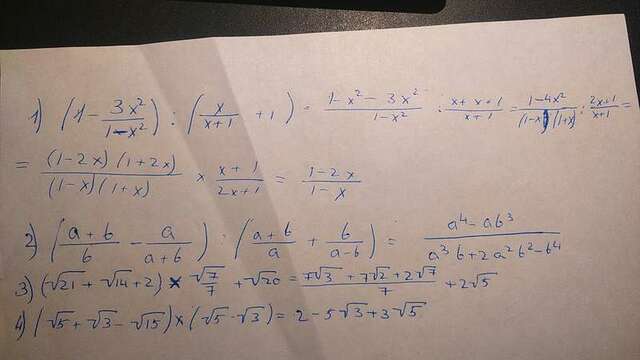 1) (1 - 3x²/(1-x²)) : (x/(x+1) + 1) = (1-x²-3x²)/(1-x²) : (x+x+1)/(x+1) = (1-4x²)/((1-x)(1+x)) : (2x+1)/(x+1) =
= ((1-2x)(1+2x))/((1-x)(1+x)) × (x+1)/(2x+1) = (1-2x)/(1-x)
2) ((a+b)/b - a/(a+b)) : ((a+b)/a + b/(a-b)) = (a⁴-ab³)/(a³b+2a²b²-b⁴)
3) (√21 + √14 + 2) × √7/7 + √20 = (7√3 + 7√2 + 2√7)/7 + 2√5
4) (√5 + √3 - √15) × (√5 - √3) = 2 - 5√3 + 3√5